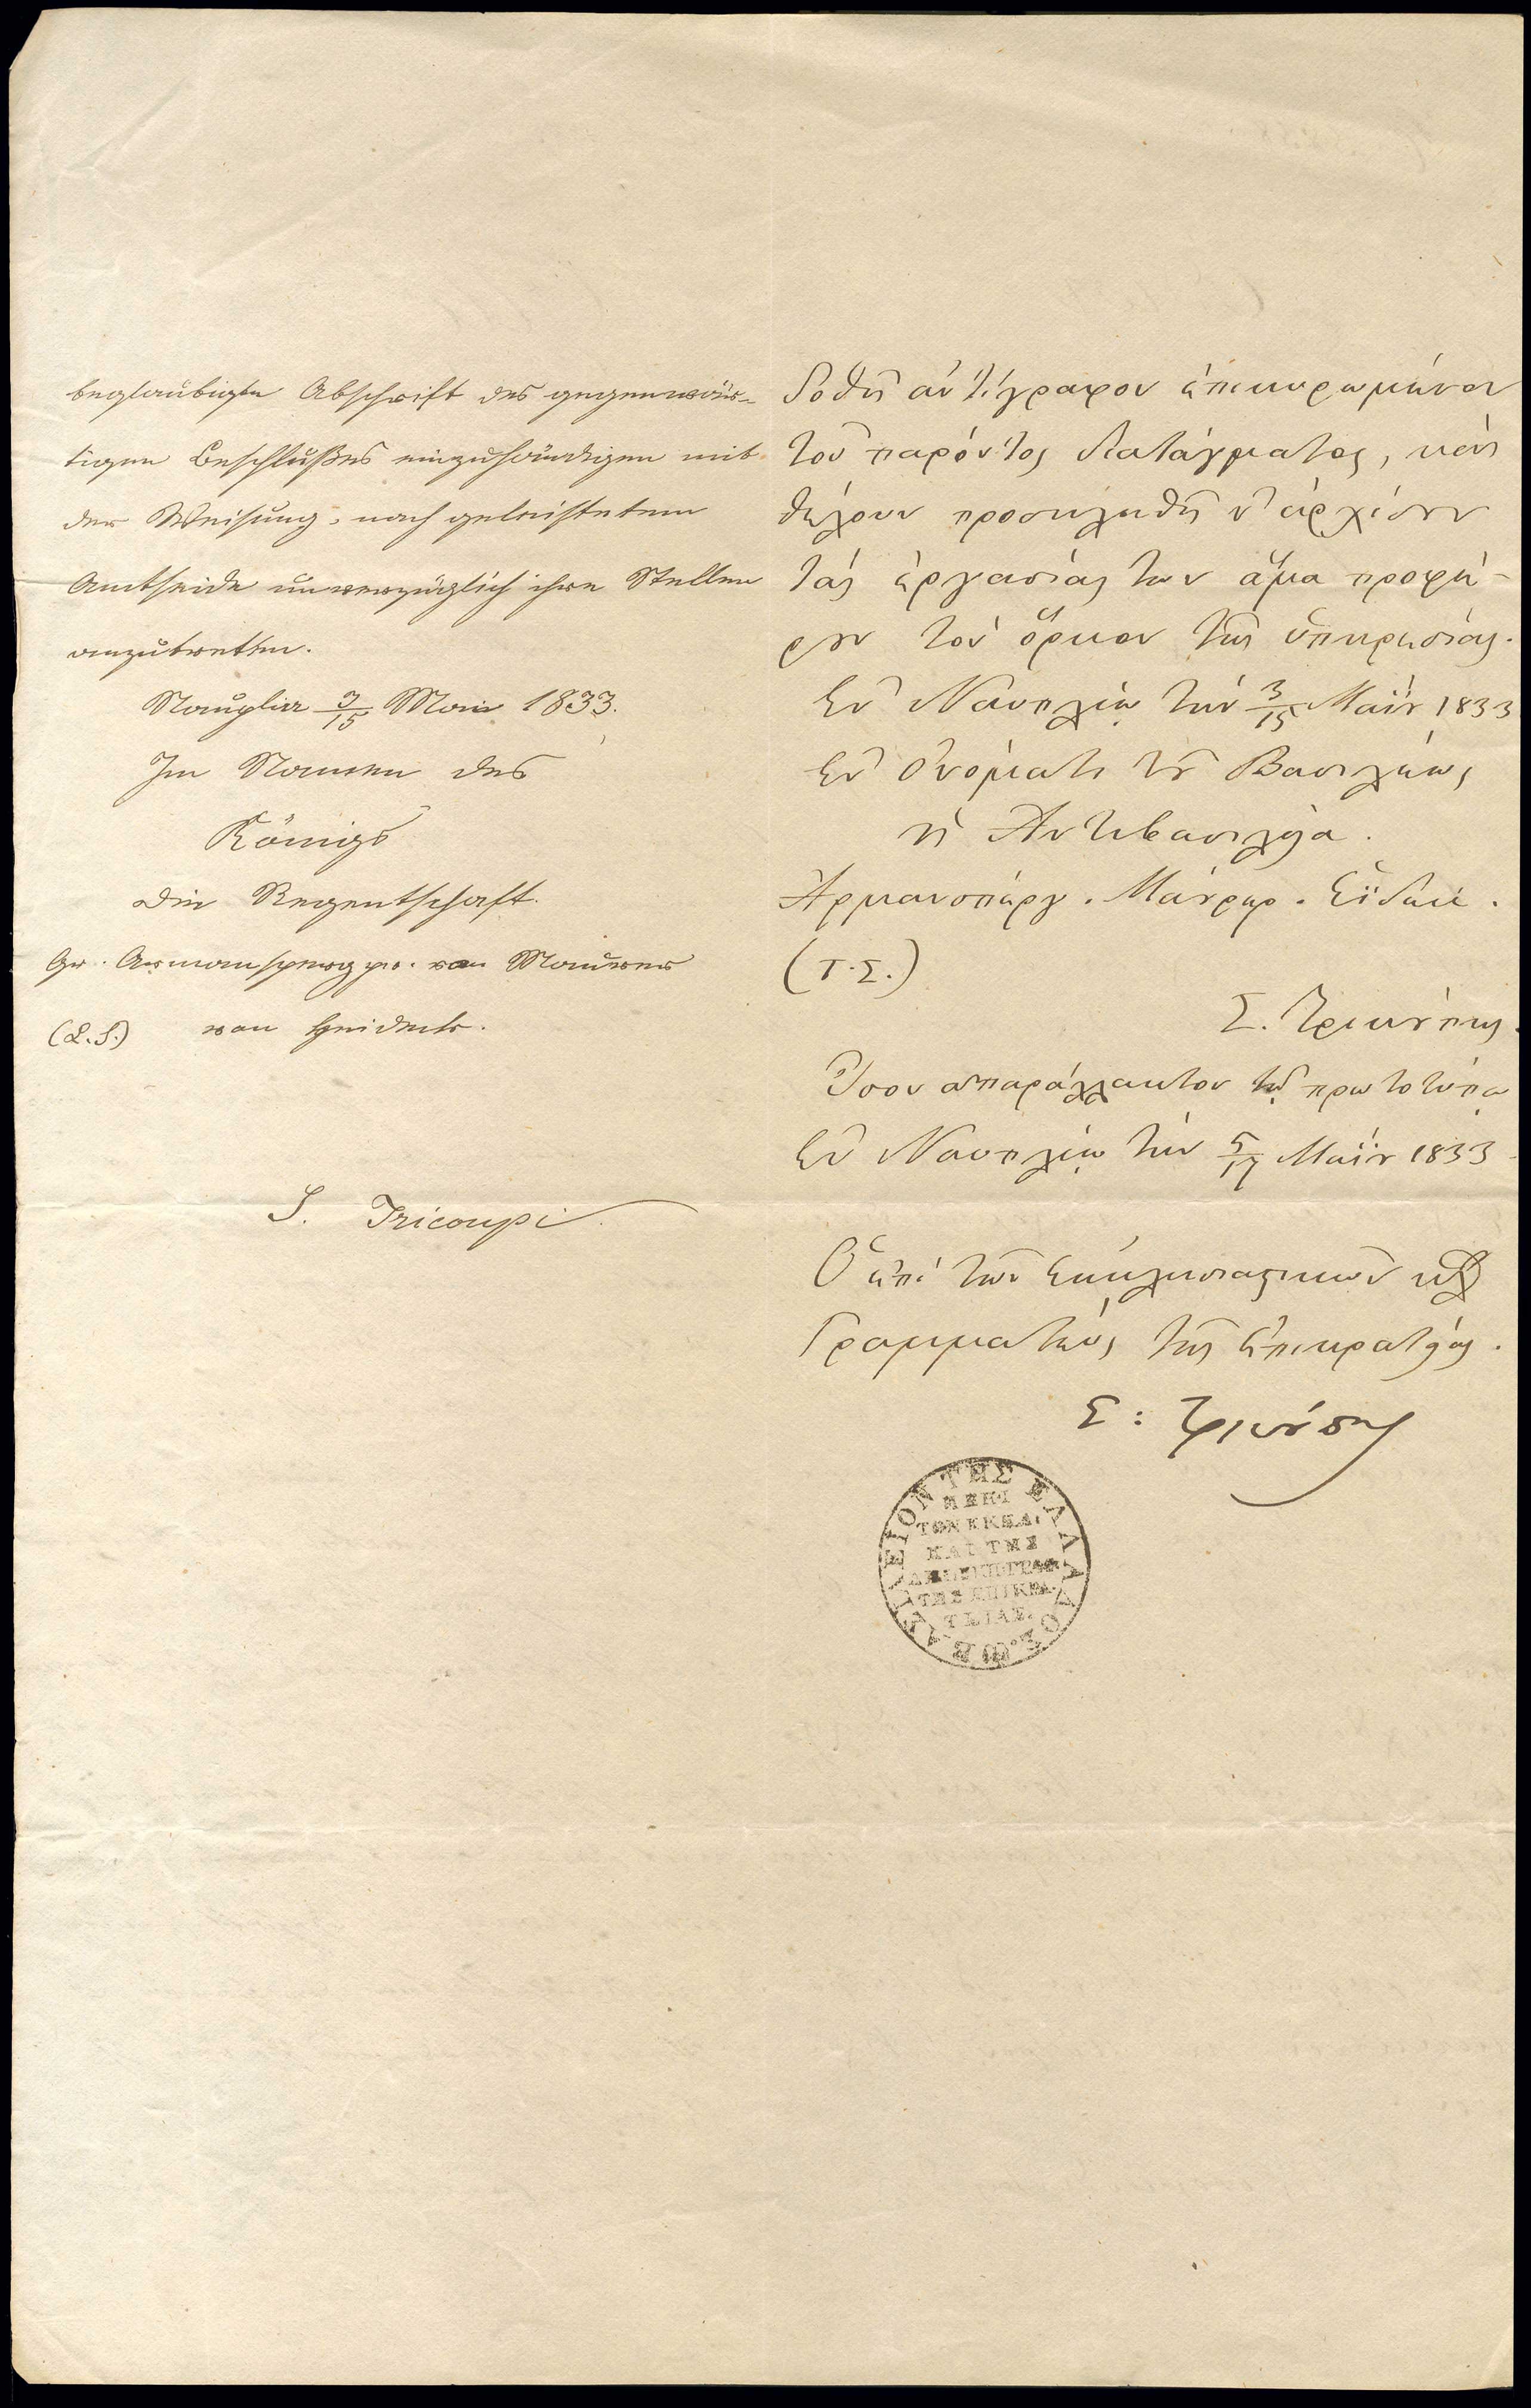 beglaubigte Abschrift des gegenwär-
tigen Beschlußes einzuhändigen mit
der Weisung, nach geleistetem
Amtseide unverzüglich ihre Stellen
anzutretten.
Nauplia 3/15 Mai 1833.
Im Namen des
Königs
Die Regentschaft.
Gr. Armansperg pr. von Maurer
(L.S.) von Heideck.
S. Tricoupi
δοθῆ ἀντίγραφον ἐπικυρωμένον
τοῦ παρόντος διατάγματος, καὶ
θέλουν προσκληθῆ ν' ἀρχίσουν
τὰς ἐργασίας των ἅμα προφέ-
ρουν τὸν ὅρκον τῆς ὑπηρεσίας.
Ἐν Ναυπλίῳ τὴν 3/15 Μαΐου 1833
Ἐν Ὀνόματι τοῦ Βασιλέως
ἡ Ἀντιβασιλεία.
Ἀρμανσπέργ. Μάουρερ. Ἐϊδεκ.
(Τ.Σ.)
Σ. Τρικούπης.
Ἴσον ἀπαράλλακτον τῷ πρωτοτύπῳ
Ἐν Ναυπλίῳ τὴν 5/17 Μαΐου 1833
Ὁ ἐπὶ τῶν Ἐκκλησιαστικῶν κτλ
Γραμματεὺς τῆς Ἐπικρατείας.
Σ: Τρικούπης
ΒΑΣΙΛΕΙΟΝ ΤΗΣ ΕΛΛΑΔΟΣ.
Η ΕΠΙ
ΤΩΝ ΕΚΚΛ.
ΚΑΙ ΤΗΣ
ΤΗΣ ΕΠΙΚΡΑ
ΤΕΙΑΣ.